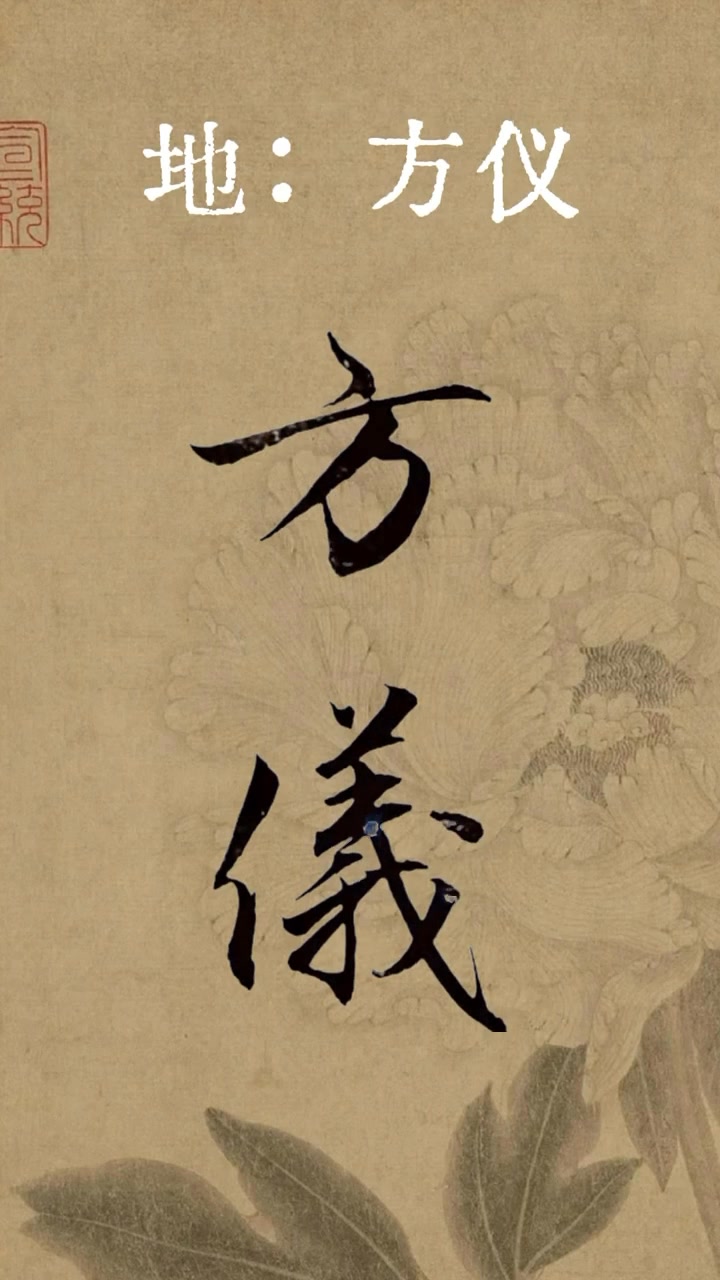 地：方仪
方
儀